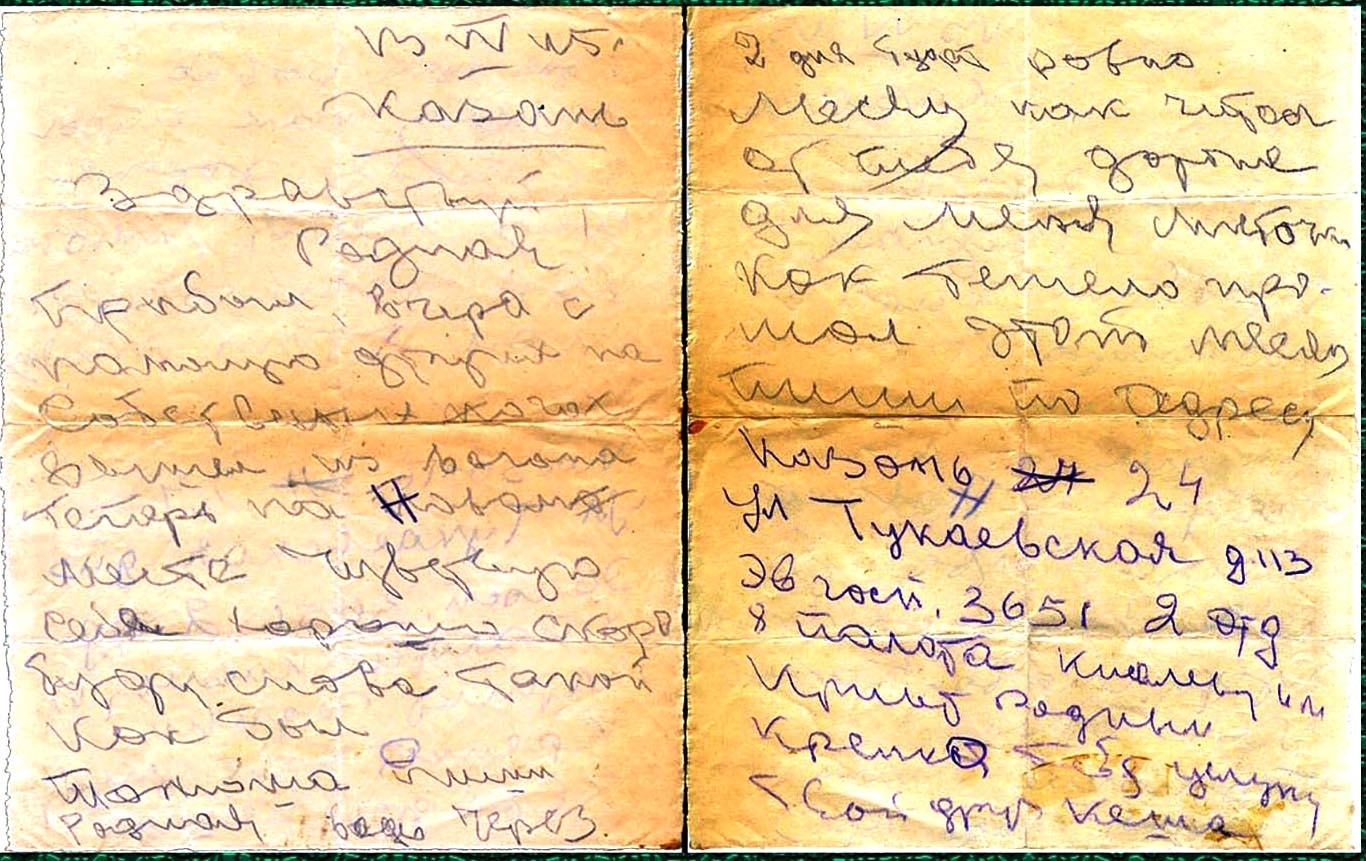 13 VI 45.
Казань
Здравствуй,
Родная
Прибыл, вчера с
помощью других на
собственных ногах
вышел из вагона
теперь на Новом
месте Чувствую
себя хорошо скоро
буду снова такой
как был
Тонюша Пиши
Родная ведь через
2 дня будет ровно
месяц как читал
от тебя дорогие
для меня листочки
как тяжело про-
шол этот месяц
пиши по адресу
Казань 24
ул Тукаевская д 113
Эв госп. 3651 2 отд
8 палата
Привет родным
Крепко тебя целую
Твой друг Кеша